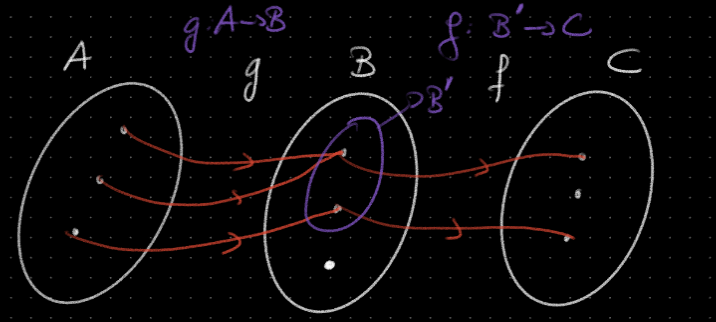 g: A→B
f: B'→C
A
g
B
f
C
B'